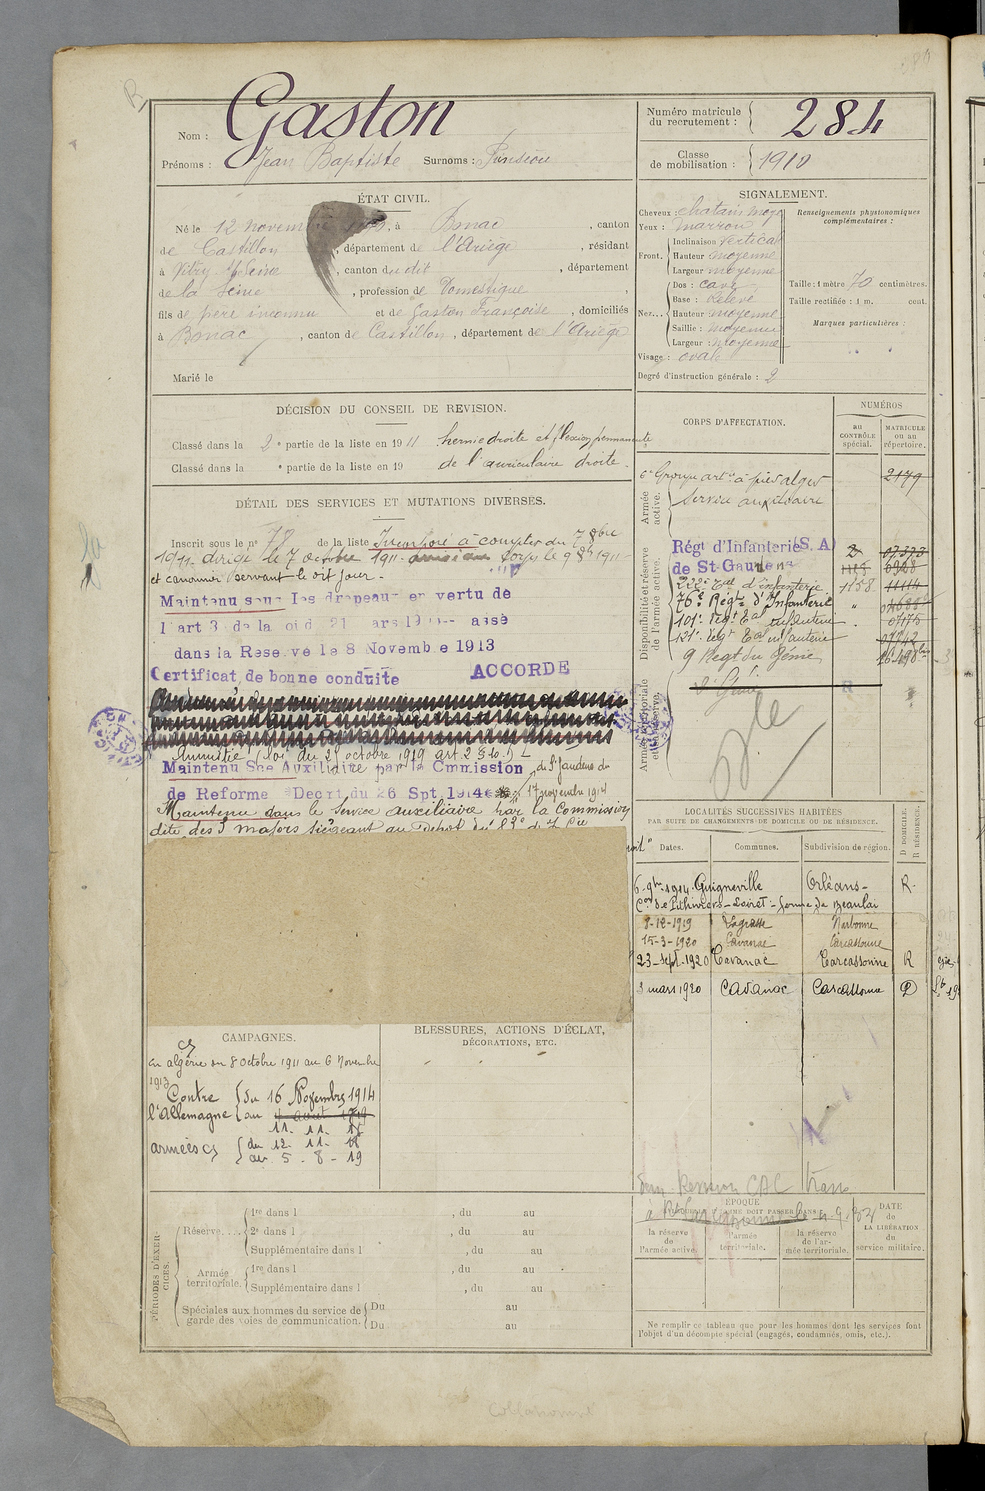 Nom : Gaston
Prénoms : Jean Baptiste Surnoms :
Numéro matricule du recrutement : 284
Classe de mobilisation : 1910
ÉTAT CIVIL.
Né le 12 novembre, à Bonac, canton
de Castillon, département de l'Ariège, résidant
à Vitry s/Seine, canton du dit, département
de la Seine, profession de Domestique
fils de père inconnu et de Gaston Françoise, domiciliés
à Bonac, canton de Castillon, département de l'Ariège
Marié le
SIGNALEMENT.
Cheveux : chatain moy.
Yeux : marron
Front. Inclinaison vertical
Hauteur moyenne
Largeur moyenne
Nez... Dos : cave
Base : relevé
Hauteur moyenne
Saillie : moyenne
Largeur : moyenne
Visage : ovale
Degré d'instruction générale : 2
Renseignements physionomiques complémentaires :
Taille : 1 mètre 70 centimètres.
Taille rectifiée : 1 m. cent.
Marques particulières :
DÉCISION DU CONSEIL DE REVISION.
Classé dans la 2e partie de la liste en 1911 hernie droite et flexion permanente
Classé dans la e partie de la liste en 19 de l'auriculaire droite.
DÉTAIL DES SERVICES ET MUTATIONS DIVERSES.
Inscrit sous le n° 78 de la liste Incorporé à compter du 7 8bre
1911 dirigé le 7 octobre 1911. corps le 9 8bre 1911
et canonnier servant le dit jour.
Maintenu sous les drapeaux en vertu de
l'art 3 de la loi du 21 ars 19 assé
dans la Reserve le 8 Novembre 1913
Certificat de bonne conduite ACCORDE
Amnistié (loi du 24 octobre 1919 art. 2 § 10.)
Maintenu Sce Auxiliaire par la Cmmission de St Gaudens du
de Reforme Decrt du 26 Spt 1914 17 novembre 1914
Maintenu dans le Service auxiliaire par la Commission
dite des 3 majors siégeant au Dépôt du
CORPS D'AFFECTATION.
NUMÉROS
au CONTRÔLE spécial.
MATRICULE ou au répertoire.
Armée active.
6e Groupe artie à pied alger 2179
Service auxiliaire
Disponibilité et réserve de l'armée active.
Régt d'Infanterie (S. A)
de St Gaudens
d'infanterie 1158 11114
76e Régt d'Infanterie "
101e Régt Eal infanterie
121e Régt Eal infanterie
9 Régt du Génie
Armée territoriale et sa réserve.
Génie
LOCALITÉS SUCCESSIVES HABITÉES
PAR SUITE DE CHANGEMENTS DE DOMICILE OU DE RÉSIDENCE.
Dates. Communes. Subdivision de région. D DOMICILE. R RÉSIDENCE.
6-9bre 1914 Guigneville Orléans - R.
Con de Pithiviers - Loiret - ferme de Beaulai
8-12-1919 Lagrasse Narbonne
15-3-1920 Cavanac Carcassonne
23-sept-1920 Cavanac Carcassonne R
3 mars 1920 Cavanac Carcassonne D
CAMPAGNES.
en algérie du 8 octobre 1911 au 6 Novembre
1913
Contre l'Allemagne du 16 Novembre 1914
au 5 août 1919
11. 11. 18
armées du 12. 11. 18
au 5 - 8 - 19
BLESSURES, ACTIONS D'ÉCLAT,
DÉCORATIONS, ETC.
Pension CAC
à Carcassonne
PÉRIODES D'EXERCICES.
Réserve.... 1re dans l , du au
2e dans l , du au
Supplémentaire dans l , du au
Armée territoriale. 1re dans l , du au
Supplémentaire dans l , du au
Spéciales aux hommes du service de garde des voies de communication. Du au
Du au
ÉPOQUE
À LAQUELLE L'HOMME DOIT PASSER DANS :
la réserve de l'armée active.
l'armée territoriale.
la réserve de l'armée territoriale.
DATE de LA LIBÉRATION du service militaire.
Ne remplir ce tableau que pour les hommes dont les services font
l'objet d'un décompte spécial (engagés, condamnés, omis, etc.).
Collationné